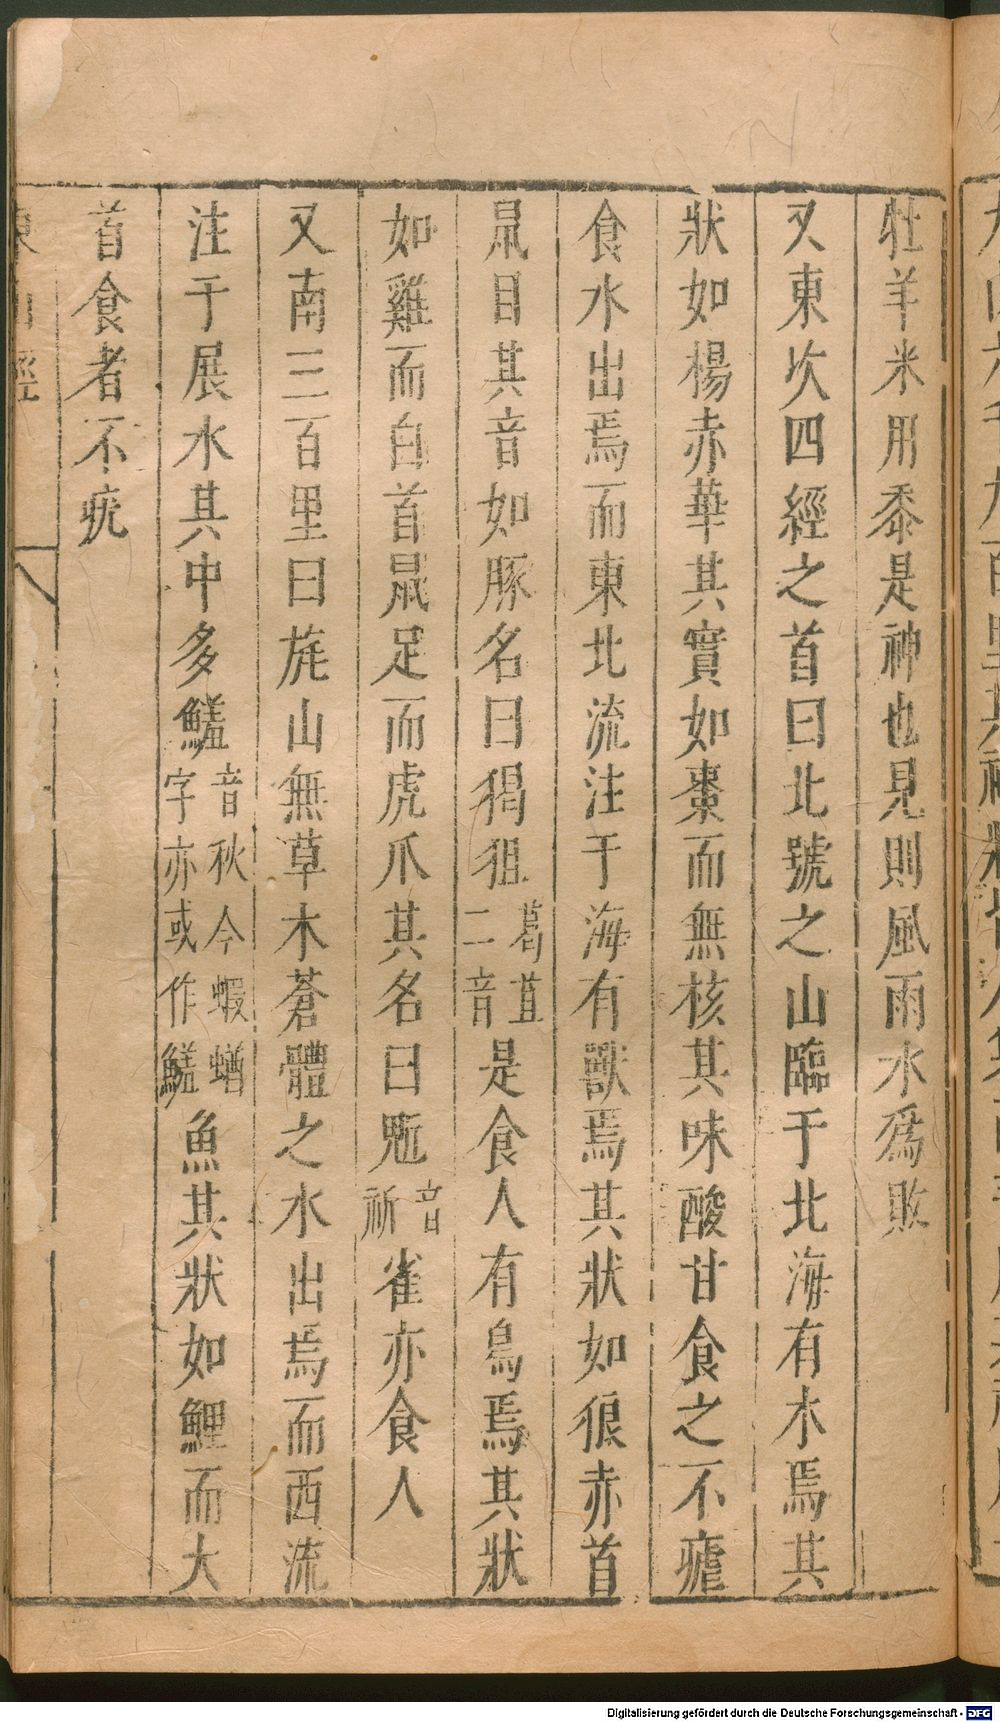 牡羊米用黍是神也見則風雨水爲敗
又東次四經之首曰北號之山臨于北海有木焉其
狀如楊赤華其實如棗而無核其味酸甘食之不瘧
食水出焉而東北流注于海有獸焉其狀如狼赤首
鼠目其音如豚名曰猲狙葛苴二音是食人有鳥焉其狀
如雞而白首鼠足而虎爪其名曰鬿音祈雀亦食人
又南三百里曰旄山無草木蒼體之水出焉而西流
注于展水其中多鱃音秋今蝦䲡字亦或作鱃魚其狀如鯉而大
首食者不疣
東山經
Digitalisierung gefördert durch die Deutsche Forschungsgemeinschaft - DFG